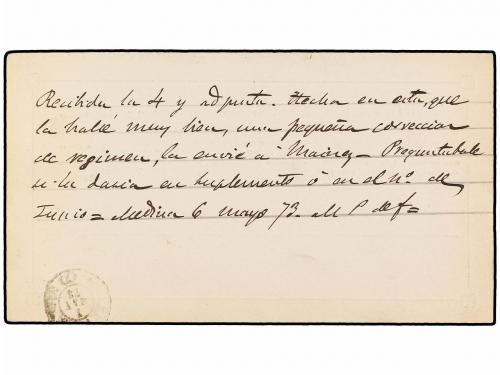 Recibida la 4 y adjunta. Hecha en esta, que
la hallé muy bien, una pequeña correccion
de regimen, la envié á Mainez - Preguntabale
si la daria en suplemento ó en el nº. de
Junio = Medina 6 mayo 73. M P de f =